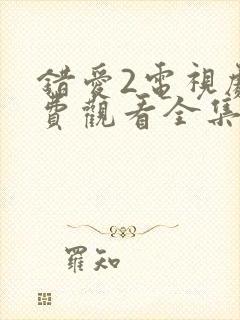 錯愛2電視劇
費觀看全集
羅知